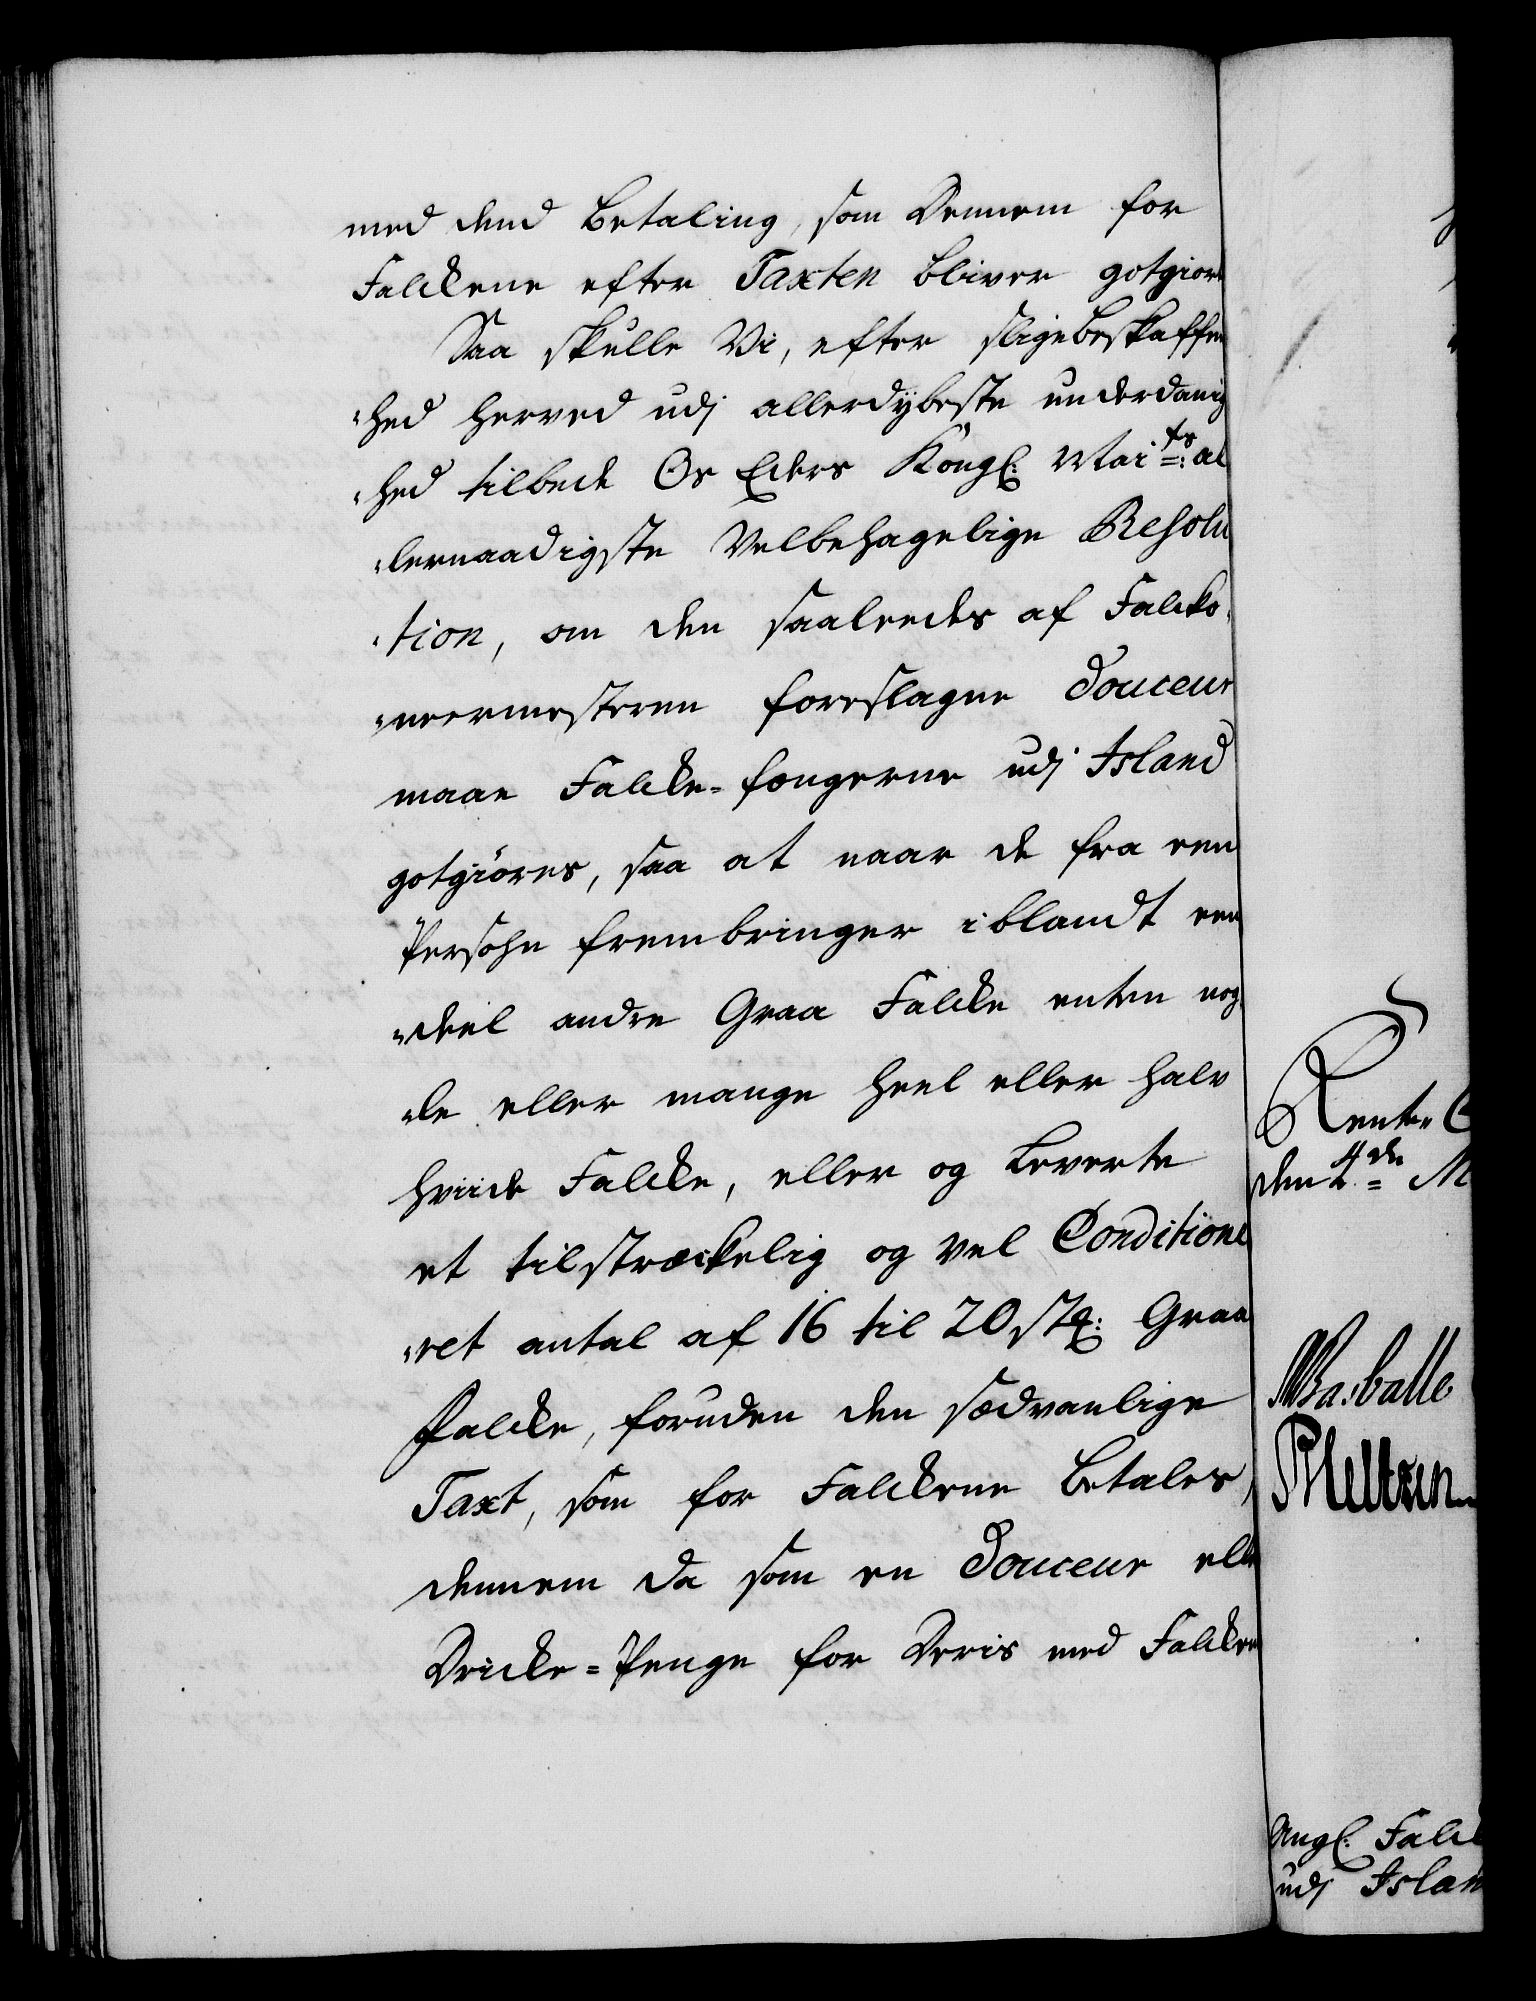 med dend Betaling, som Dennem for
Falckene efter Taxten bliver gotgiort
Saa skulle Vi, efter slig beskaffen
„hed herved udj allerdybeste underdanig
„hed tilbede Os Eders Kongl: Maits: al
„lernaadigste Velbehagelige Resolu
„tion, om den saaledes af Falcko„
„neermesteren foreslagne Douceur
maae Falcke-fengerne udj Island
gotgiöres, saa at naar de fra een
Persohn frembringer iblandt een
„deel andre Graa Falcke enten nog
„le eller mange heel eller halv
hviide Falcke, eller og Leverte
et tilstræckelig og vel Conditione
„ret antal af 16 til 20 stk: Graa
Falcke, foruden den sædvanlige
Taxt, som for Falckene Betales,
dennem da som en Douceur elle
Dricke-Penge for Deris med Falcken
Rente C
den 4de M
Meltzen
Kongl: Falck
udj Islan